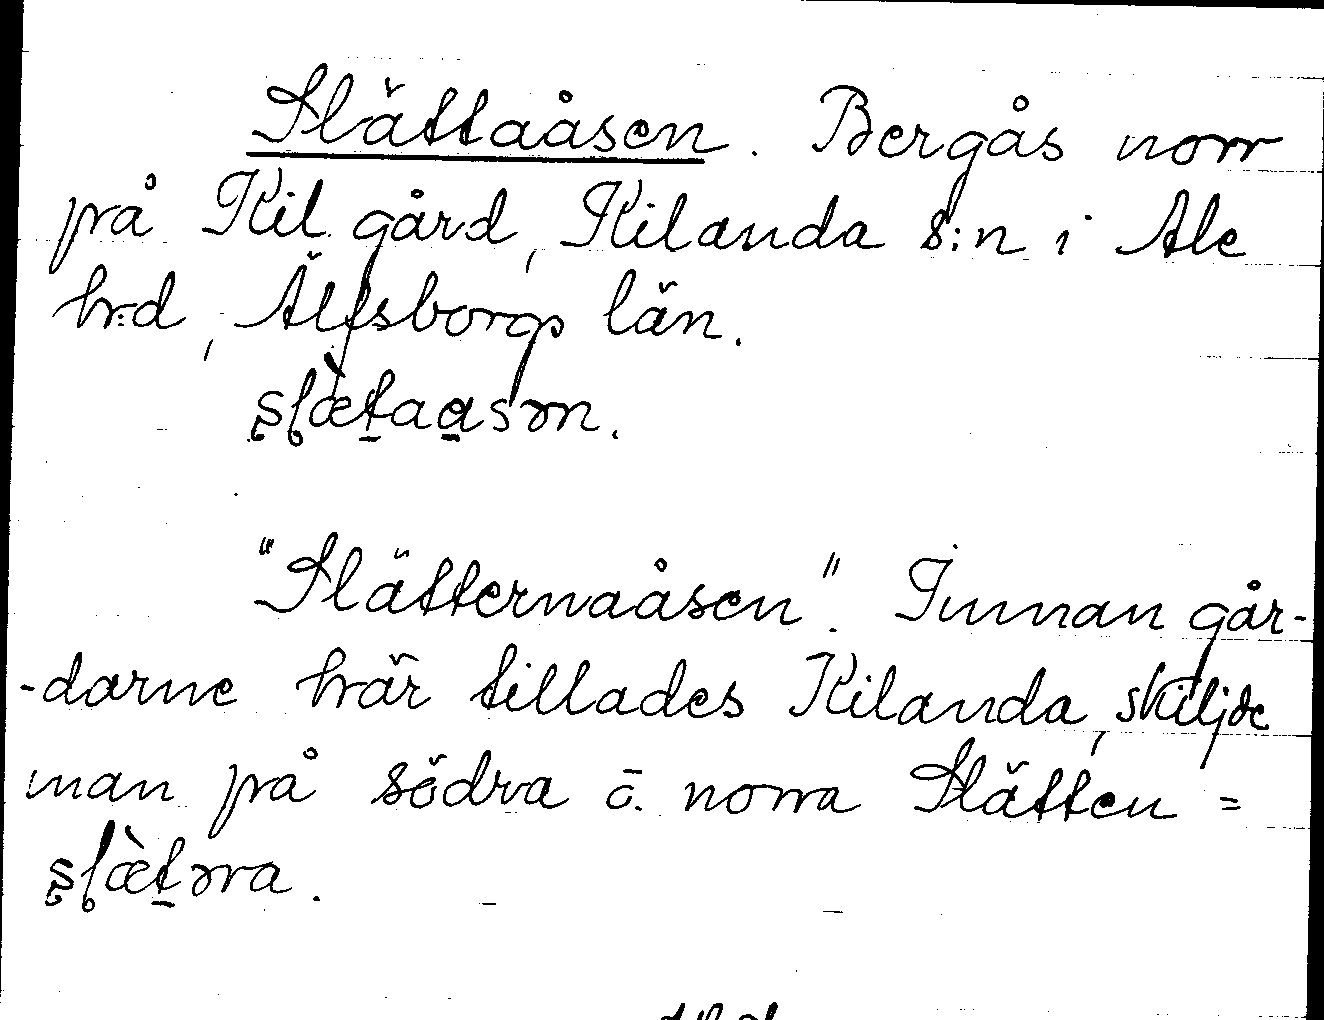 Slättaåsen. Bergås norr
på Kil gård, Kilanda s:n i Ale
h:d, Älfsborgs län.
ʂɭæ̀taasən.
"Slätternaåsen". Innan går-
-darne här tillades Kilanda, skiljde
man på södra o. norra Slätten =
ʂɭæ̀təra.